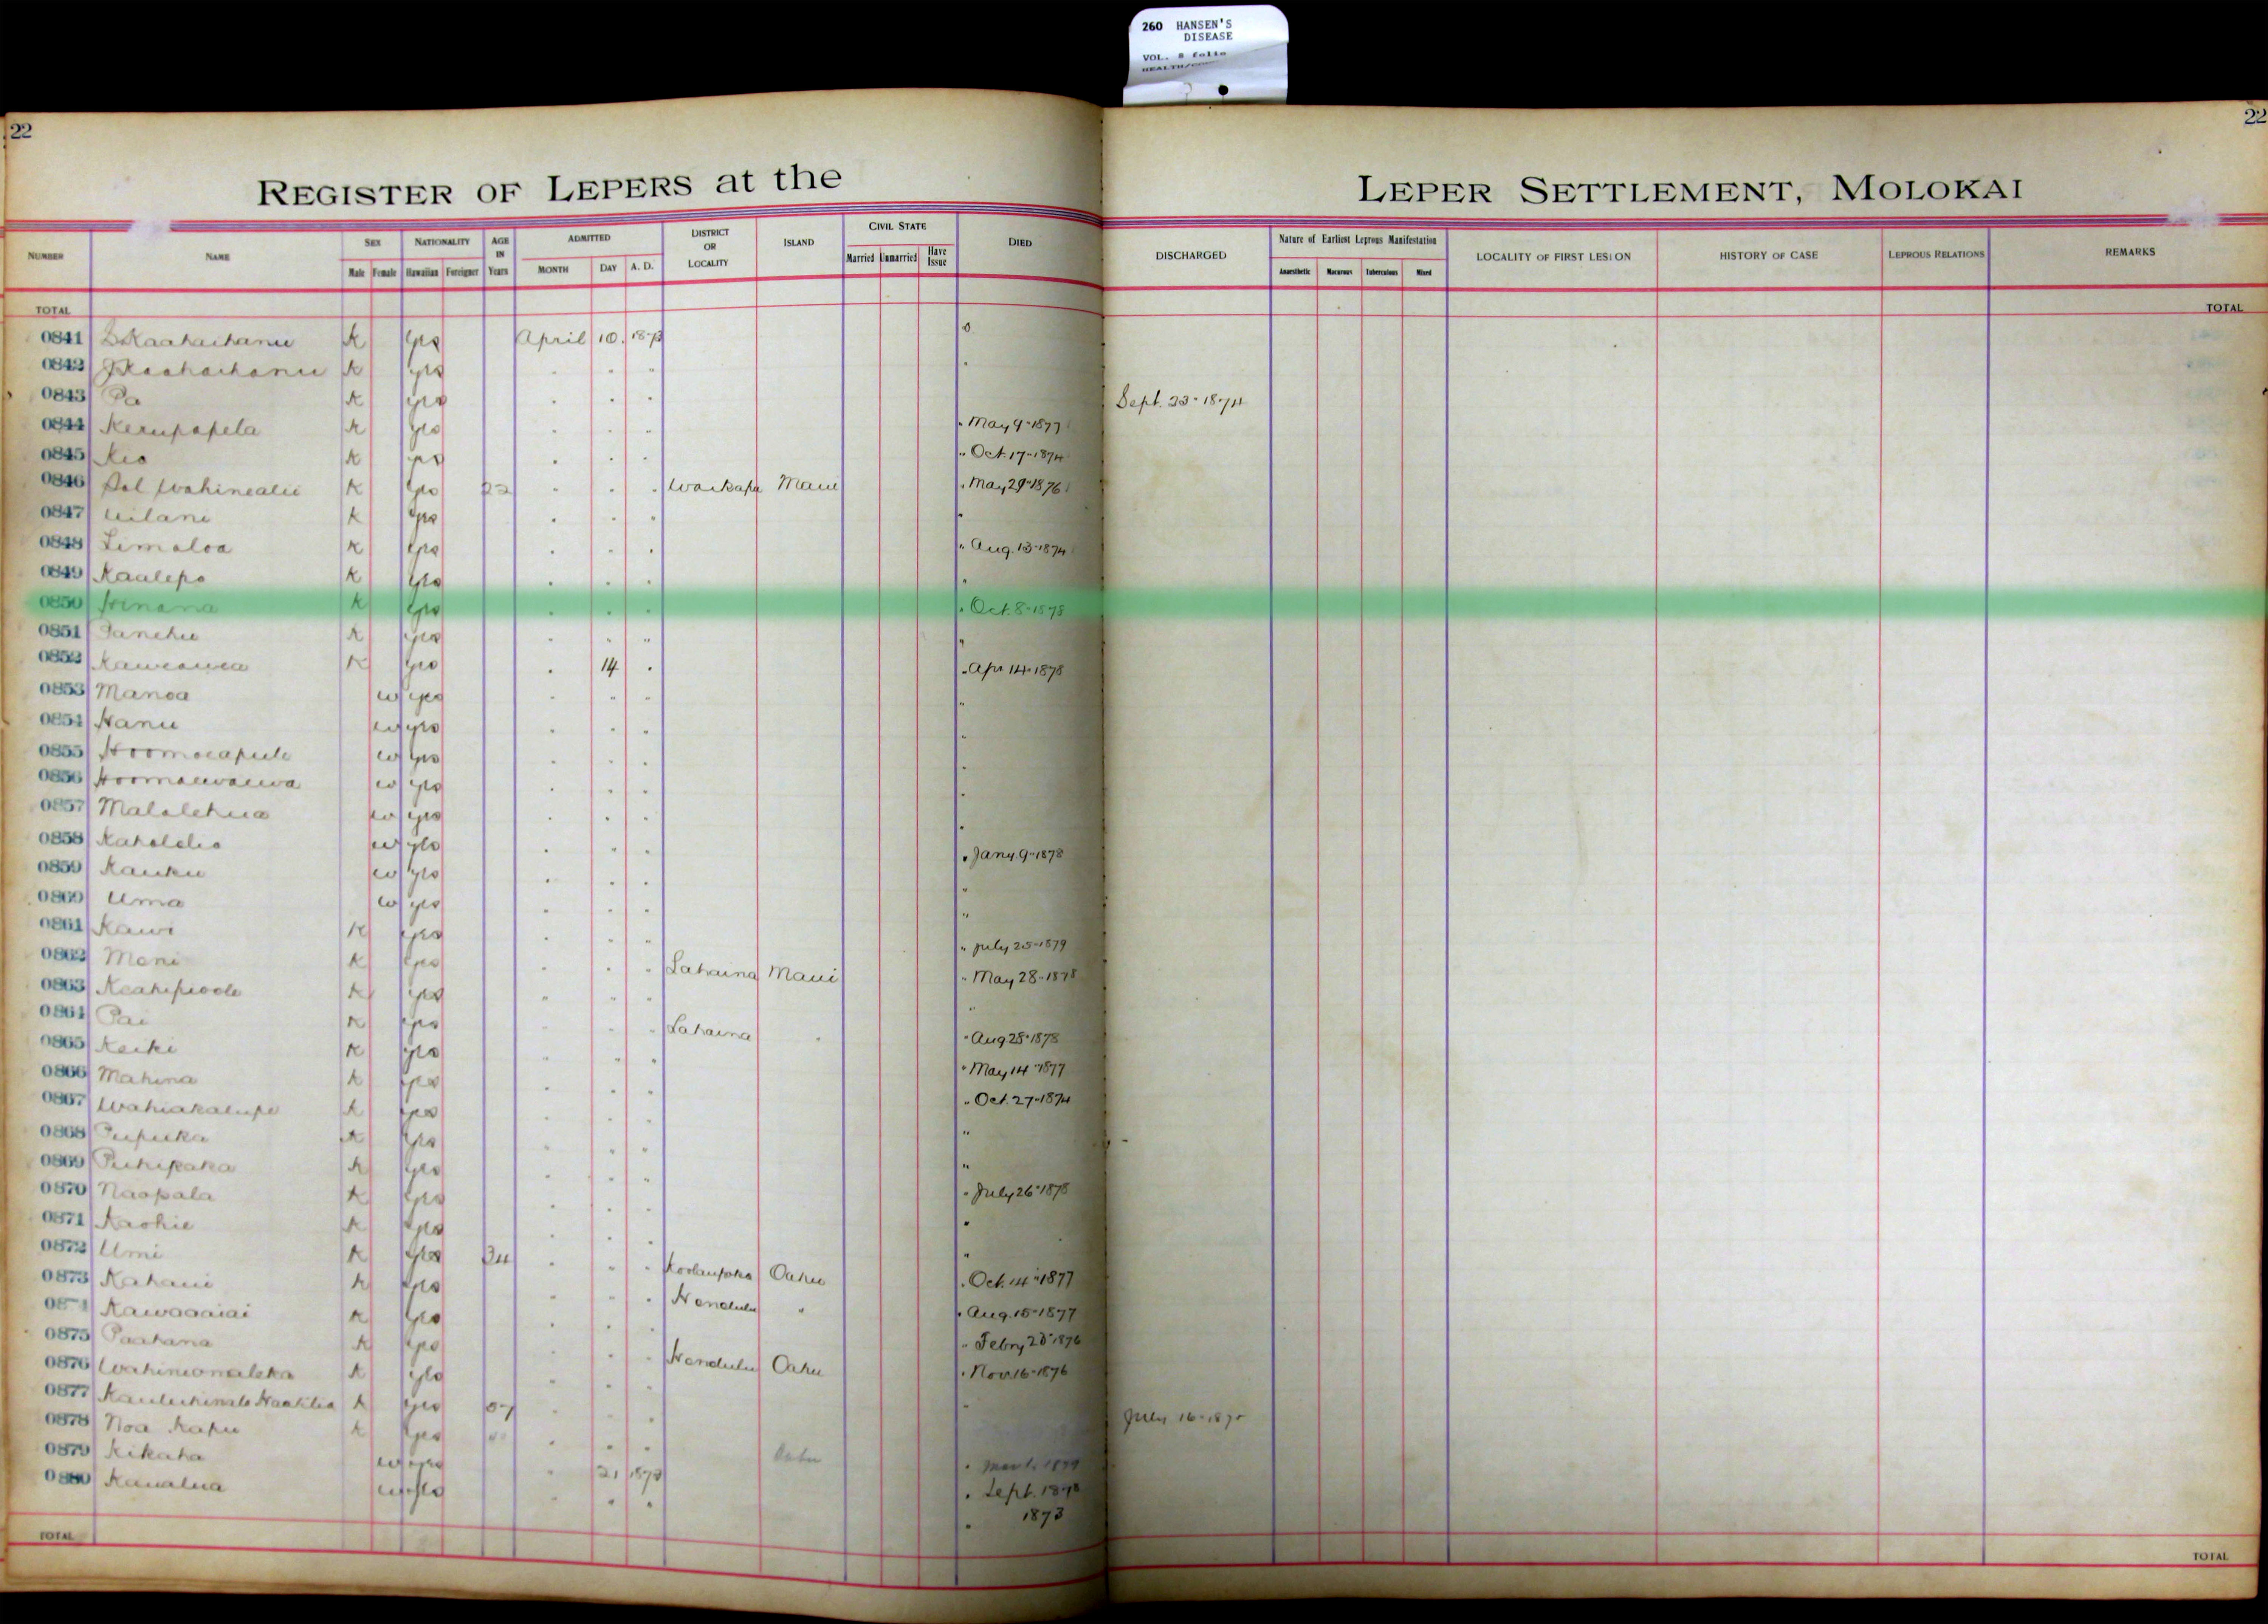 260 HANSEN'S
DISEASE
VOL. 8 folio
22
22
REGISTER OF LEPERS at the
LEPER SETTLEMENT, MOLOKAI
NUMBER NAME SEX Male Female NATIONALITY Hawaiian Foreigner AGE IN Years ADMITTED MONTH DAY A. D. DISTRICT OR LOCALITY ISLAND CIVIL STATE Married Unmarried Have Issue DIED
DISCHARGED Nature of Earliest Leprous Manifestation Anaesthetic Macurous Tuberculous Mixed LOCALITY OF FIRST LESION HISTORY OF CASE LEPROUS RELATIONS REMARKS
TOTAL TOTAL
0841 K yes April 10. 1873
0842 K yes
0843 Pa K yes Sept. 23-1874
0844 Keaupapela K yes May 9-1877
0845 Kio K yes Oct. 17-1874
0846 Pol Wahinealii K yes 22 Waikapu Maui May 29-1876
0847 Uilani K yes
0848 Limaloa K yes Aug. 13-1874
0849 Kaalepo K yes
0850 Hinana K yes Oct. 8-1878
0851 K yes
0852 Kaweawea K yes 14 Apr 14-1878
0853 Manoa w yes
0854 Hanu w yes
0855 Hoomoeapule w yes
0856 Hoomauwauwa w yes
0857 Malolehua w yes
0858 Kahalelio w yes Jany. 9-1878
0859 Kauku w yes
0860 Uma w yes
0861 Kawi K yes July 25-1879
0862 Meni K yes Lahaina Maui May 28-1878
0863 Keahipioole K yes
0864 Pai K yes Lahaina " Aug 28-1878
0865 Keiki K yes May 14-1877
0866 Mahina K yes Oct. 27-1874
0867 Wahiakalupe K yes
0868 Pupuka K yes
0869 Puhipaka K yes July 26-1878
0870 Naopala K yes
0871 Kaohie K yes
0872 Umi K yes 34 Koolaupoko Oahu Oct. 14-1877
0873 Kahaui K yes Honolulu " Aug. 15-1877
0874 Kawaaaiai K yes Febry 28-1876
0875 Paahana K yes Honolulu Oahu Nov. 16-1876
0876 K yes
0877 K yes 57 July 16-187
0878 Noa Kapu K yes Oahu 1879
0879 Kikaha w yes 21 1873 Sept. 1878
0880 Kaualua w yes 1873
TOTAL TOTAL